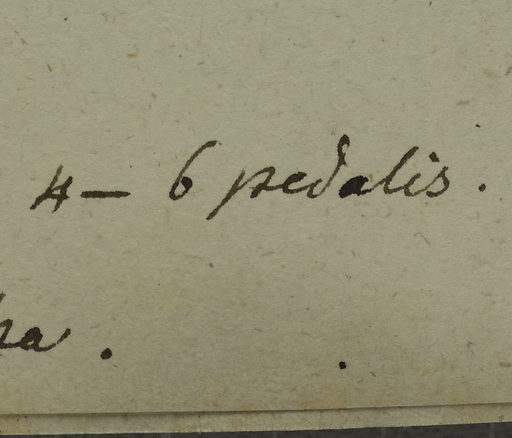 4 – 6 pedalis.